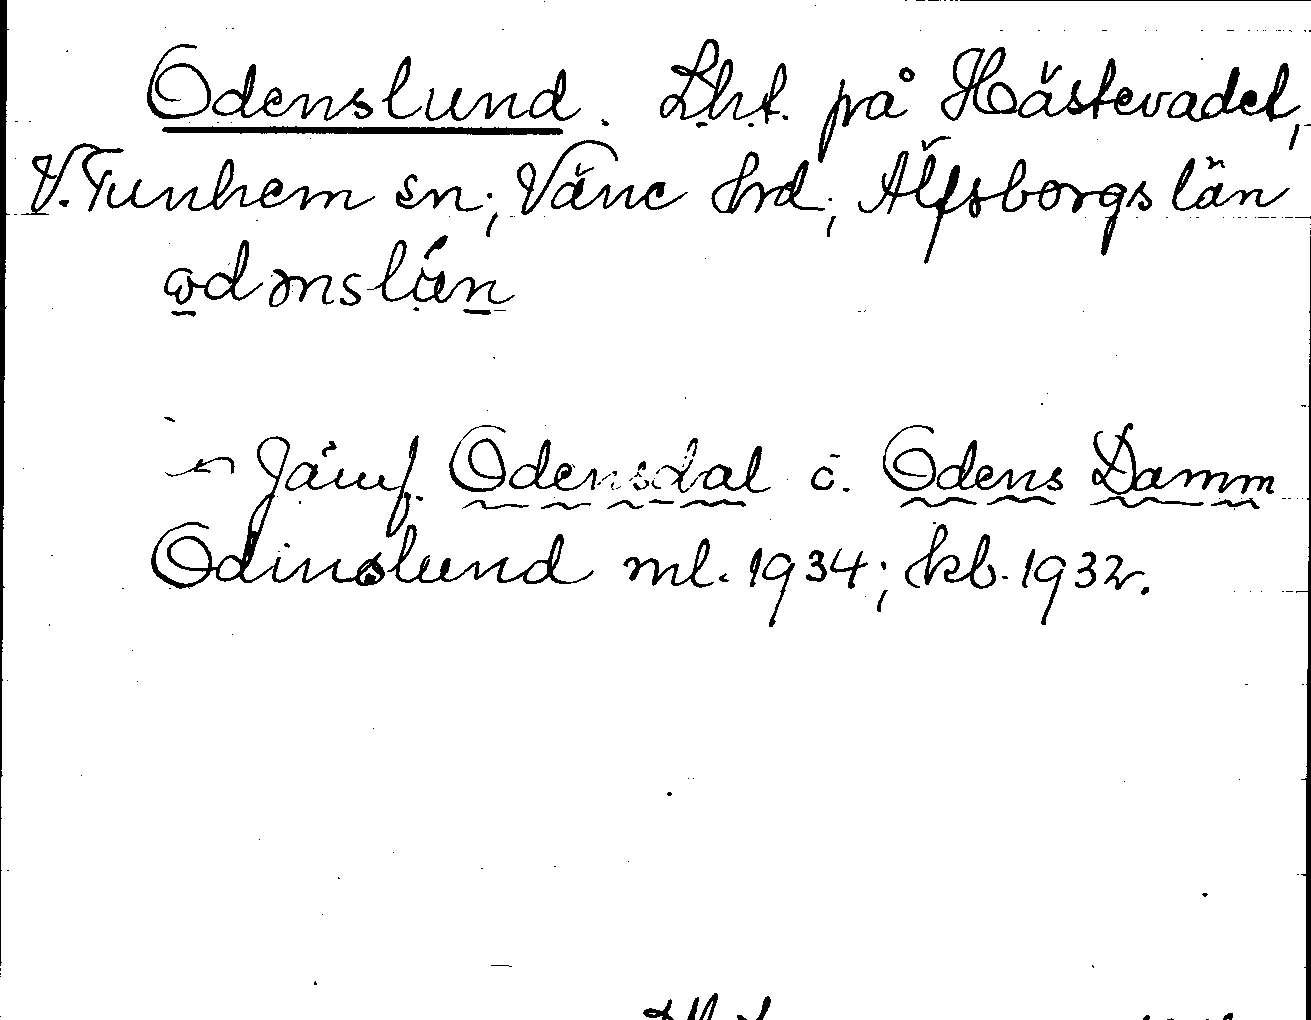 Odenslund. Lht. på Hästevadet,
V. Tunhem sn; Väne hrd; Älfsborgs län
Jämf. Odensdal o. Odens Damm
Odinslund ml. 1934; kb. 1932.